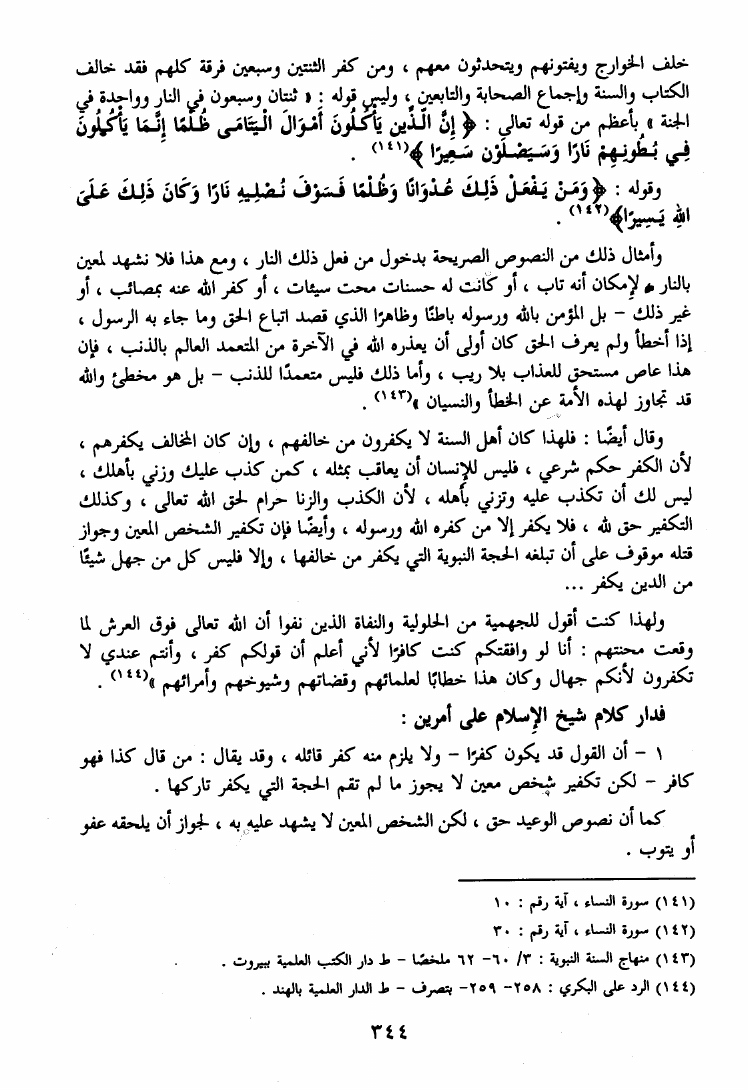 خلف الخوارج ويفتونهم ويتحدثون معهم ، ومن كفر الثنتين وسبعين فرقة كلهم فقد خالف
الكتاب والسنة وإجماع الصحابة والتابعين ، وليس قوله : « ثنتان وسبعون في النار وواحدة في
الجنة » بأعظم من قوله تعالى : ﴿ إِنَّ الَّذِينَ يَأْكُلُونَ أَمْوَالَ الْيَتَامَى ظُلْمًا إِنَّمَا يَأْكُلُونَ
فِي بُطُونِهِمْ نَارًا وَسَيَصْلَوْنَ سَعِيرًا ﴾(١٤١) .
وقوله : ﴿ وَمَنْ يَفْعَلْ ذَلِكَ عُدْوَانًا وَظُلْمًا فَسَوْفَ نُصْلِيهِ نَارًا وَكَانَ ذَلِكَ عَلَىَ
اللهِ يَسِيرًا﴾(١٤٢) .
وأمثال ذلك من النصوص الصريحة بدخول من فعل ذلك النار ، ومع هذا فلا نشهد لمعين
بالنار ، لإمكان أنه تاب ، أو كانت له حسنات محت سيئات ، أو كفر الله عنه بمصائب ، أو
غير ذلك – بل المؤمن بالله ورسوله باطنًا وظاهرًا الذي قصد اتباع الحق وما جاء به الرسول ،
إذا أخطأ ولم يعرف الحق كان أولى أن يعذره الله في الآخرة من المتعمد العالم بالذنب ، فإن
هذا عاص مستحق للعذاب بلا ريب ، وأما ذلك فليس متعمدًا للذنب – بل هو مخطئ والله
قد تجاوز لهذه الأمة عن الخطأ والنسيان »(١٤٣) .
وقال أيضًا : فلهذا كان أهل السنة لا يكفرون من خالفهم ، وإن كان المخالف يكفرهم ،
لأن الكفر حكم شرعي ، فليس للإنسان أن يعاقب بمثله ، كمن كذب عليك وزني بأهلك ،
ليس لك أن تكذب عليه وتزني بأهله ، لأن الكذب والزنا حرام لحق الله تعالى ، وكذلك
التكفير حق لله ، فلا يكفر إلا من كفره الله ورسوله ، وأيضًا فإن تكفير الشخص المعين وجواز
قتله موقوف على أن تبلغه الحجة النبوية التي يكفر من خالفها ، وإلا فليس كل من جهل شيئًا
من الدين يكفر ...
ولهذا كنت أقول للجهمية من الحلولية والنفاة الذين نفوا أن الله تعالى فوق العرش لما
وقعت محنتهم : أنا لو وافقتكم كنت كافرًا لأني أعلم أن قولكم كفر ، وأنتم عندي لا
تكفرون لأنكم جهال وكان هذا خطابًا لعلمائهم وقضاتهم وشيوخهم وأمرائهم »(١٤٤) .
فدار كلام شيخ الإسلام على أمرين :
١ – أن القول قد يكون كفرًا – ولا يلزم منه كفر قائله ، وقد يقال : من قال كذا فهو
كافر – لكن تكفير شخص معين لا يجوز ما لم تقم الحجة التي يكفر تاركها .
كما أن نصوص الوعيد حق ، لكن الشخص المعين لا يشهد عليه به ، لجواز أن يلحقه عفو
أو يتوب .
(١٤١) سورة النساء ، آية رقم : ١٠
(١٤٢) سورة النساء ، آية رقم : ٣٠
(١٤٣) منهاج السنة النبوية : ٣/ ٦٠– ٦٢ ملخصًا – ط دار الكتب العلمية ببيروت .
(١٤٤) الرد على البكري : ٢٥٨– ٢٥٩– بتصرف – ط الدار العلمية بالهند .
٣٤٤